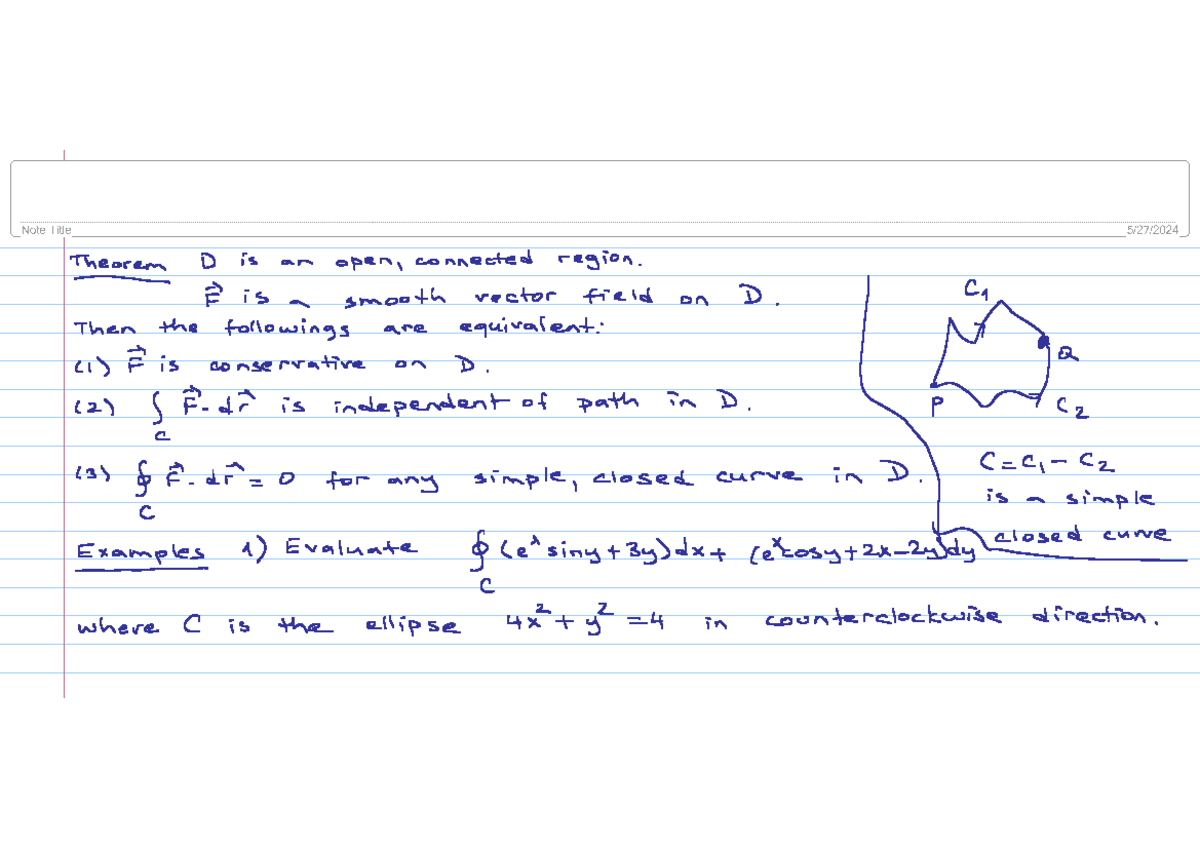 Note Title
5/27/2024
Theorem D is an open, connected region.
F⃗ is a smooth vector field on D.
Then the followings are equivalent:
(1) F⃗ is conservative on D.
(2) ∫_C F⃗. dr⃗ is independent of path in D.
(3) ∮_C F⃗. dr⃗ = 0 for any simple, closed curve in D.
C₁
Q
P
C₂
C = C₁ - C₂
is a simple
closed curve
Examples 1) Evaluate ∮_C (eˣ siny + 3y)dx + (eˣcosy + 2x - 2y)dy
where C is the ellipse 4x² + y² = 4 in counterclockwise direction.